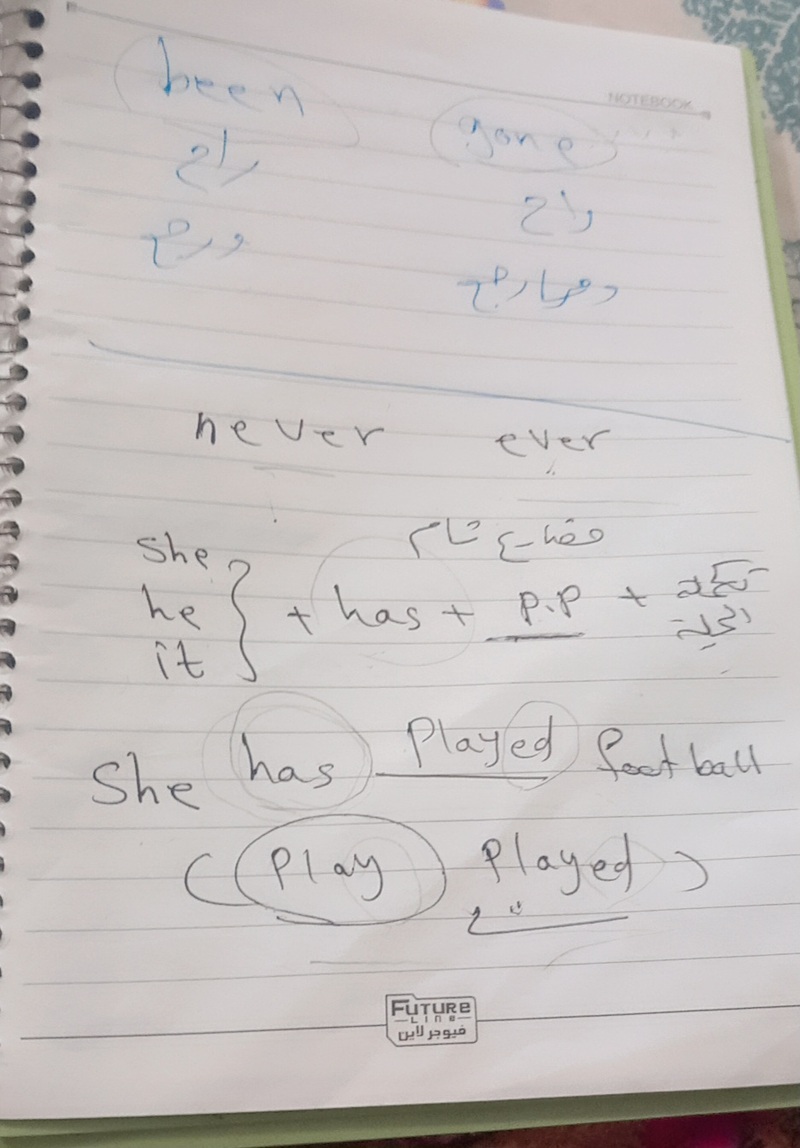 NOTEBOOK
been gone
راح راح
ورجع ومرجع
never ever
مضارع تام
she
he
it } + has + P.P + تكملة
الجملة
She has Played football
(Play Played)
FUTURE
LINE
فيوجر لاين